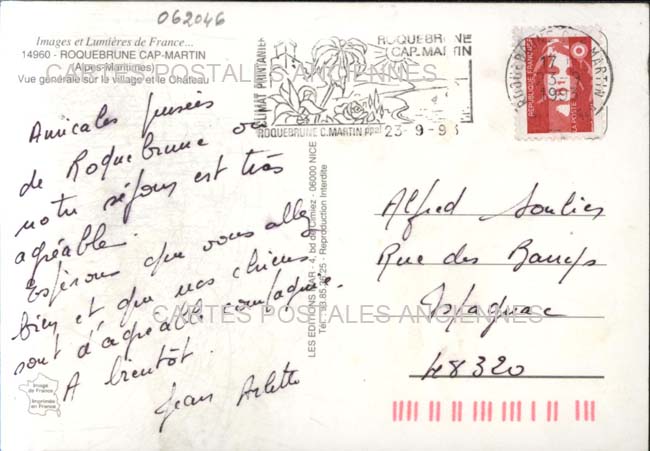 062046
Images et Lumières de France...
14960 - ROQUEBRUNE CAP-MARTIN
(Alpes-Maritimes)
Vue générale sur le village et le Château
CARTES POSTALES ANCIENNES
CLIMAT PRINTANIER
ROQUEBRUNE
CAP-MARTIN
ROQUEBRUNE C.MARTIN PPAL 23-9-93
RÉPUBLIQUE FRANÇAISE
LA POSTE
Amicales pensées
de Roquebrune où
notre séjour est très
agréable.
Espérons que vous allez
bien et que nos chiens
sont d'agréable compagnie.
A bientôt.
Jean Arlette
LES EDITIONS MAR - 4, bd de Cimiez - 06000 NICE
Reproduction Interdite
Alfred Soulier
Rue des Barrys
Ispagnac
48320
CARTES POSTALES ANCIENNES
Image
de France
Imprimée
en France